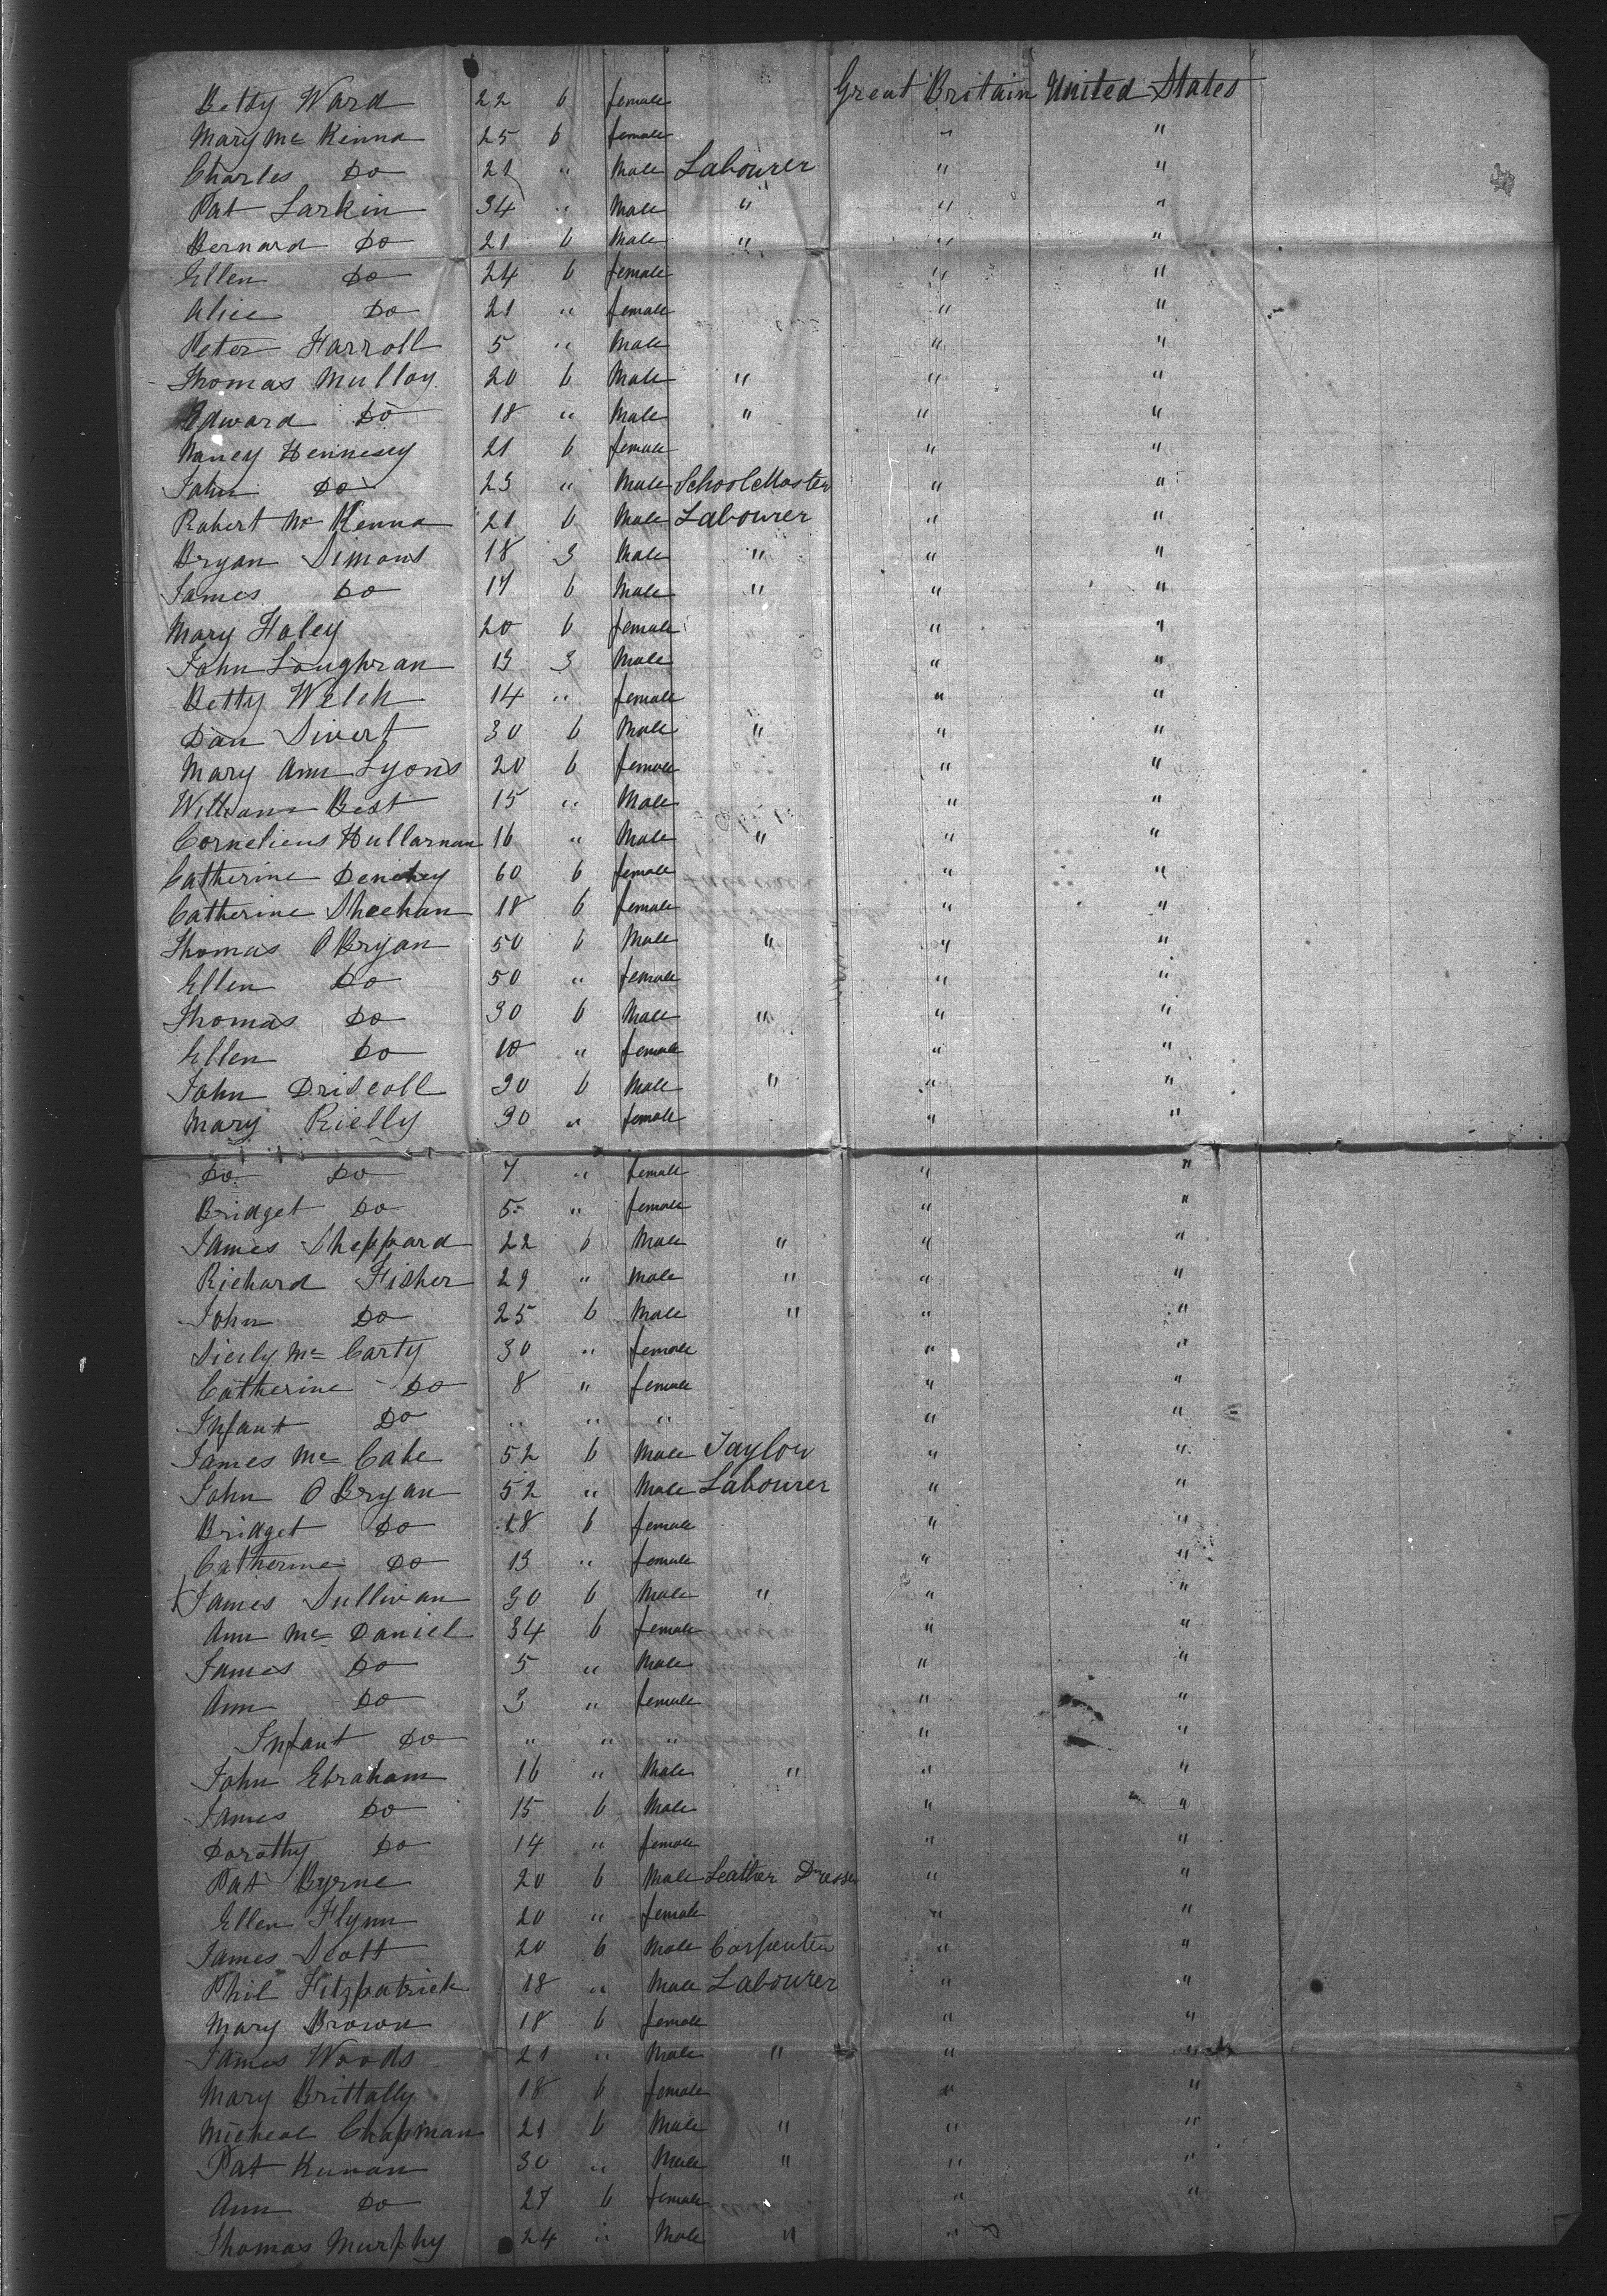 Betty Ward 22 6 female Great Britain United States
Mary Mc Kenna 25 6 female " "
Charles Do 21 " Male Labourer " "
Pat Larkin 34 " Male " " "
Bernard Do 21 6 Male " " "
Ellen Do 24 6 female " "
Alice Do 21 " female " "
Peter Harroll 5 " Male " "
Thomas Mulloy 20 6 Male " " "
Edward Do 18 " Male " " "
Nancy Hennesey 21 6 female " "
John Do 23 " Male SchoolMaster " "
Robert Mc Kenna 21 6 Male Labourer " "
Bryan Simons 18 3 Male " " "
James Do 17 6 Male " " "
Mary Haley 20 6 female " "
John Loughran 13 3 Male " "
Betty Welch 14 " female " "
Dan Sivert 30 6 Male " " "
Mary Ann Lyons 20 6 female " "
William Best 15 " Male " "
Cornelieus Hullarnan 16 " Male " " "
Catherine Denehey 60 6 female " "
Catherine Sheehan 18 6 female " "
Thomas O Bryan 50 6 Male " " "
Ellen Do 50 " female " "
Thomas Do 30 6 Male " " "
Ellen Do 10 " female " "
John Driscoll 30 6 Male " " "
Mary Rielly 30 " female " "
Do Do 7 " female " "
Bridget Do 5 " female " "
James Sheppard 22 6 Male " " "
Richard Fisher 29 " Male " " "
John Do 25 6 Male " " "
Sicily Mc Carty 30 " female " "
Catherine Do 8 " female " "
Infant Do " " " " "
James Mc Cabe 52 6 Male Taylor " "
John O Bryan 52 " Male Labourer " "
Bridget Do 18 6 female " "
Catherine Do 13 " female " "
James Sullivan 30 6 Male " " "
Ann Mc Daniel 34 6 female " "
James Do 5 " Male " "
Ann Do 3 " female " "
Infant Do " " " " "
John Ebraham 16 " Male " " "
James Do 15 6 Male " "
Dorothy Do 14 " female " "
Pat Byrne 20 6 Male Leather Dresser " "
Ellen Flynn 20 " female " "
James Scott 20 6 Male Carpenter " "
Phil Fitzpatrick 18 " Male Labourer " "
Mary Brown 18 6 female " "
James Woods 21 " Male " " "
Mary Brittally 18 6 female " "
Micheal Chapman 21 6 Male " " "
Pat Kunan 30 " Male " " "
Ann Do 27 6 female " "
Thomas Murphy 24 " Male " "